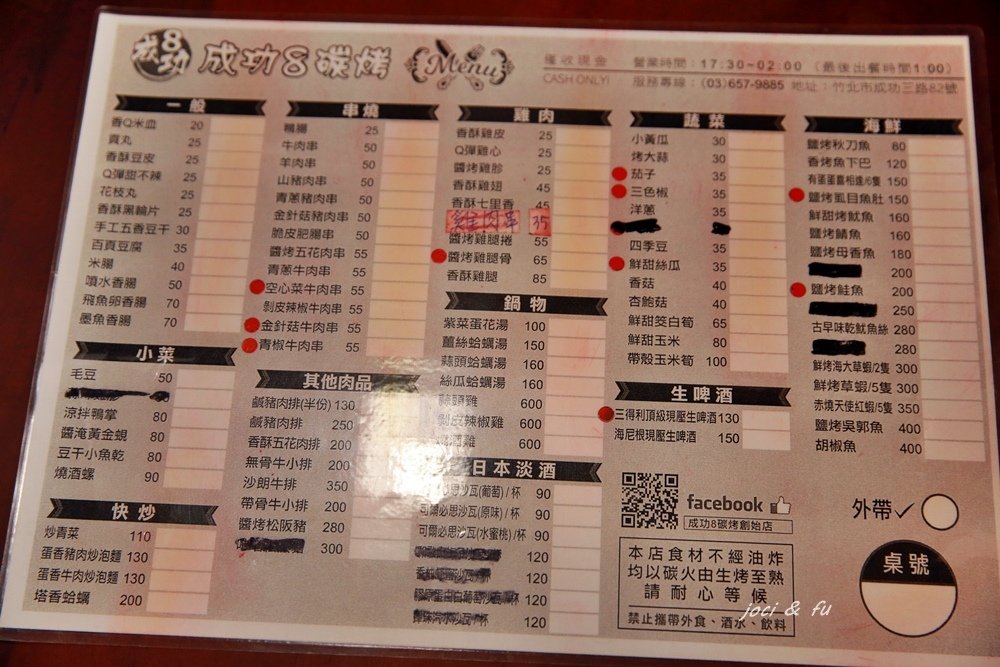 成功8
成功8碳烤
Menu
僅收現金
CASH ONLY!
營業時間：17:30~02:00 (最後出餐時間1:00)
服務專線：(03)657-9885 地址：竹北市成功三路82號
一般
香Q米血 20
貢丸 25
香酥豆皮 25
Q彈甜不辣 25
花枝丸 25
香酥黑輪片 25
手工五香豆干 30
百頁豆腐 35
米腸 40
噴水香腸 50
飛魚卵香腸 70
墨魚香腸 70
小菜
毛豆 50
涼拌鴨掌 80
醬淹黃金蜆 80
豆干小魚乾 80
燒酒螺 90
快炒
炒青菜 110
蛋香豬肉炒泡麵 130
蛋香牛肉炒泡麵 130
塔香蛤蠣 200
串燒
鴨腸 25
牛肉串 50
羊肉串 50
山豬肉串 50
青蔥豬肉串 50
金針菇豬肉串 50
脆皮肥腸串 50
醬烤五花肉串 55
青蔥牛肉串 55
空心菜牛肉串 55
剝皮辣椒牛肉串 55
金針菇牛肉串 55
青椒牛肉串 55
其他肉品
鹹豬肉排(半份) 130
鹹豬肉排 250
香酥五花肉排 200
無骨牛小排 200
沙朗牛排 350
帶骨牛小排 200
醬烤松阪豬 280
300
雞肉
香酥雞皮 25
Q彈雞心 25
醬烤雞胗 25
香酥雞翅 45
香酥七里香 45
雞肉串 35
醬烤雞腿捲 55
醬烤雞腿骨 65
香酥雞腿 85
鍋物
紫菜蛋花湯 100
薑絲蛤蠣湯 150
蒜頭蛤蠣湯 160
絲瓜蛤蠣湯 160
蒜頭雞 600
剝皮辣椒雞 600
酒雞 600
日本淡酒
可爾必思沙瓦(葡萄)/杯 90
可爾必思沙瓦(原味)/杯 90
可爾必思沙瓦(水蜜桃)/杯 90
120
120
120
120
蔬菜
小黃瓜 30
烤大蒜 30
茄子 35
三色椒 35
洋蔥 35
四季豆 35
鮮甜絲瓜 35
香菇 40
杏鮑菇 40
鮮甜筊白筍 65
鮮甜玉米 80
帶殼玉米筍 100
生啤酒
三得利頂級現壓生啤酒 130
海尼根現壓生啤酒 150
海鮮
鹽烤秋刀魚 80
香烤魚下巴 120
有蛋蛋喜相逢/6隻 150
鹽烤虱目魚肚 150
鮮甜烤魷魚 160
鹽烤鯖魚 160
鹽烤母香魚 180
200
鹽烤鮭魚 200
250
古早味乾魷魚絲 280
280
鮮烤海大草蝦/2隻 300
鮮烤草蝦/5隻 300
赤燒天使紅蝦/5隻 350
鹽烤吳郭魚 400
胡椒魚 400
facebook
成功8碳烤創始店
本店食材不經油炸
均以碳火由生烤至熟
請耐心等候
禁止攜帶外食、酒水、飲料
外帶✓
桌號
joci & fu